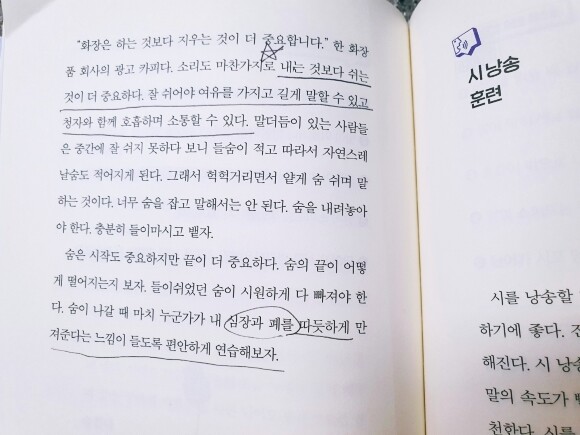 "화장은 하는 것보다 지우는 것이 더 중요합니다." 한 화장
품 회사의 광고 카피다. 소리도 마찬가지로 내는 것보다 쉬는
것이 더 중요하다. 잘 쉬어야 여유를 가지고 길게 말할 수 있고
청자와 함께 호흡하며 소통할 수 있다. 말더듬이 있는 사람들
은 중간에 잘 쉬지 못하다 보니 들숨이 적고 따라서 자연스레
날숨도 적어지게 된다. 그래서 헉헉거리면서 얕게 숨 쉬며 말
하는 것이다. 너무 숨을 잡고 말해서는 안 된다. 숨을 내려놓아
야 한다. 충분히 들이마시고 뱉자.
숨은 시작도 중요하지만 끝이 더 중요하다. 숨의 끝이 어떻
게 떨어지는지 보자. 들이쉬었던 숨이 시원하게 다 빠져야 한
다. 숨이 나갈 때 마치 누군가가 내 심장과 폐를 따듯하게 만
져준다는 느낌이 들도록 편안하게 연습해보자.
시 낭송
훈련
시를 낭송할
하기에 좋다.
해진다. 시 낭송
말의 속도가
천한다. 시를